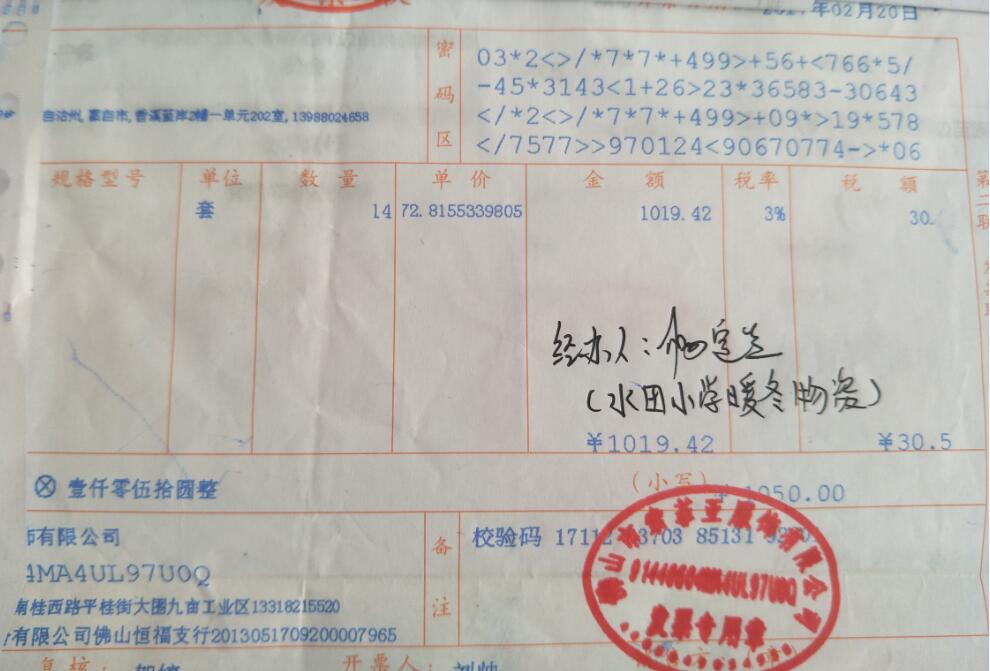 年02月20日
密码区
03*2<>/*7*7*+499>+56+<766*5/
-45*3143<1+26>23*36583-30643
</*2<>/*7*7*+499>+09*>19*578
</7577>>970124<90670774->*06
自治州,蒙自市,香溪蓝岸2幢一单元202室,13988024658
规格型号 单位 数量 单价 金额 税率 税额
套 14 72.8155339805 1019.42 3% 30.
第二联
经办人:
(水田小学暖冬物资)
¥1019.42 ¥30.5
壹仟零伍拾圆整 (小写) ¥1050.00
有限公司
4MA4UL97U0Q
南桂西路平桂街大圈九亩工业区13318215520
有限公司佛山恒福支行2013051709200007965
备注
校验码 1711 3703 85131
佛山市 服饰有限公司
发票专用章
复核: 开票人: